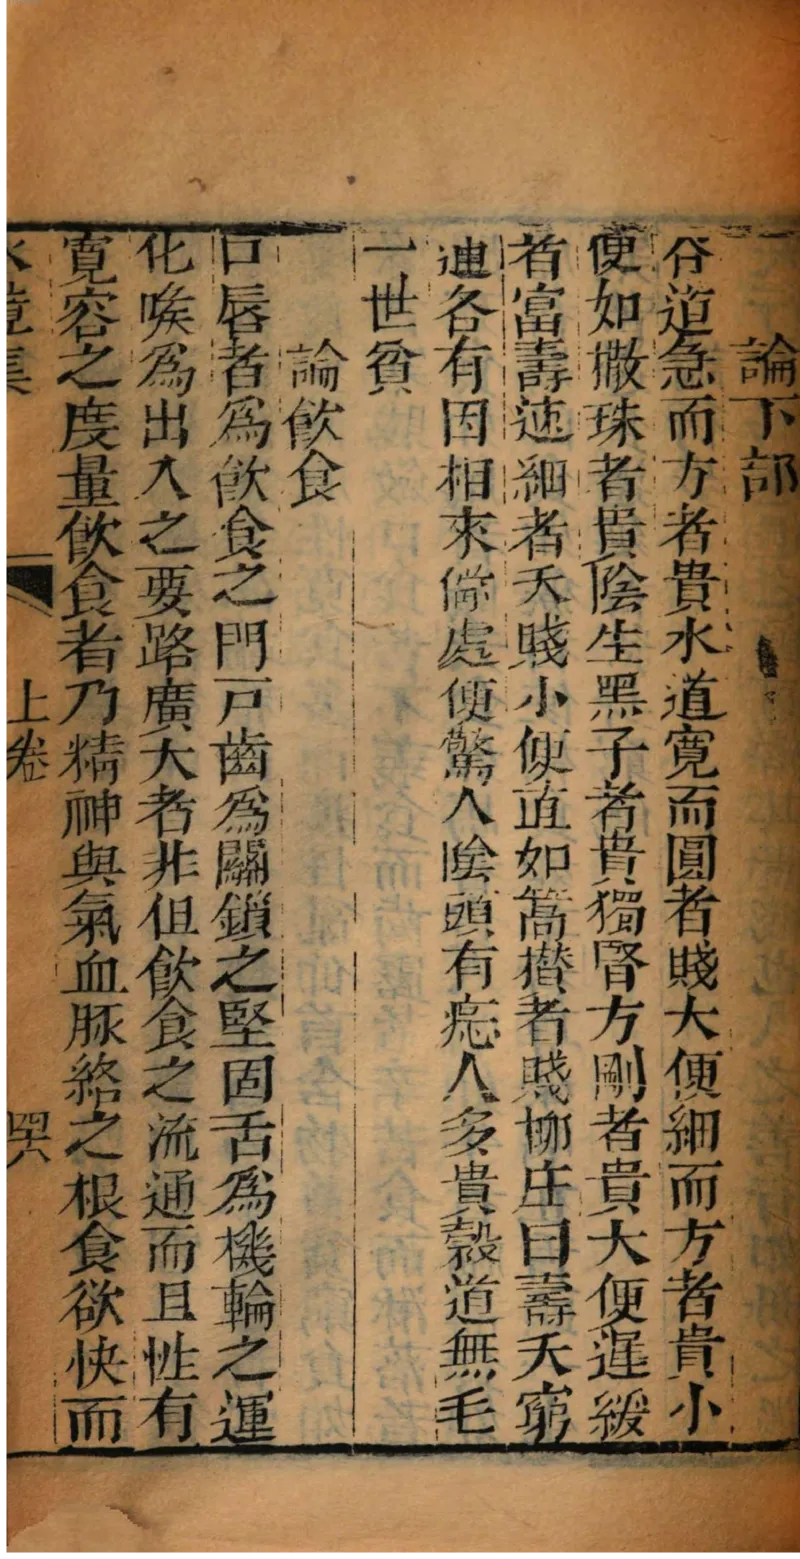 論下部
谷道急而方者貴水道寛而圓者賤大便細而方者貴小
便如撒珠者貴陰生黑子者貴獨腎方剛者貴大便遲緩
者富壽速細者夭賤小便直如篙攅者賤柳庄曰壽夭窮
通各有因相來俗處便驚人陰頭有痣人多貴穀道無毛
一世貧
論飲食
口唇者為飲食之門戸齒為關鎖之堅固舌為機輪之運
化喉為出入之要路廣大者非但飲食之流通而且性有
寬容之度量飲食者乃精神與氣血脈絡之根食欲快而
水鏡集
上卷
四六